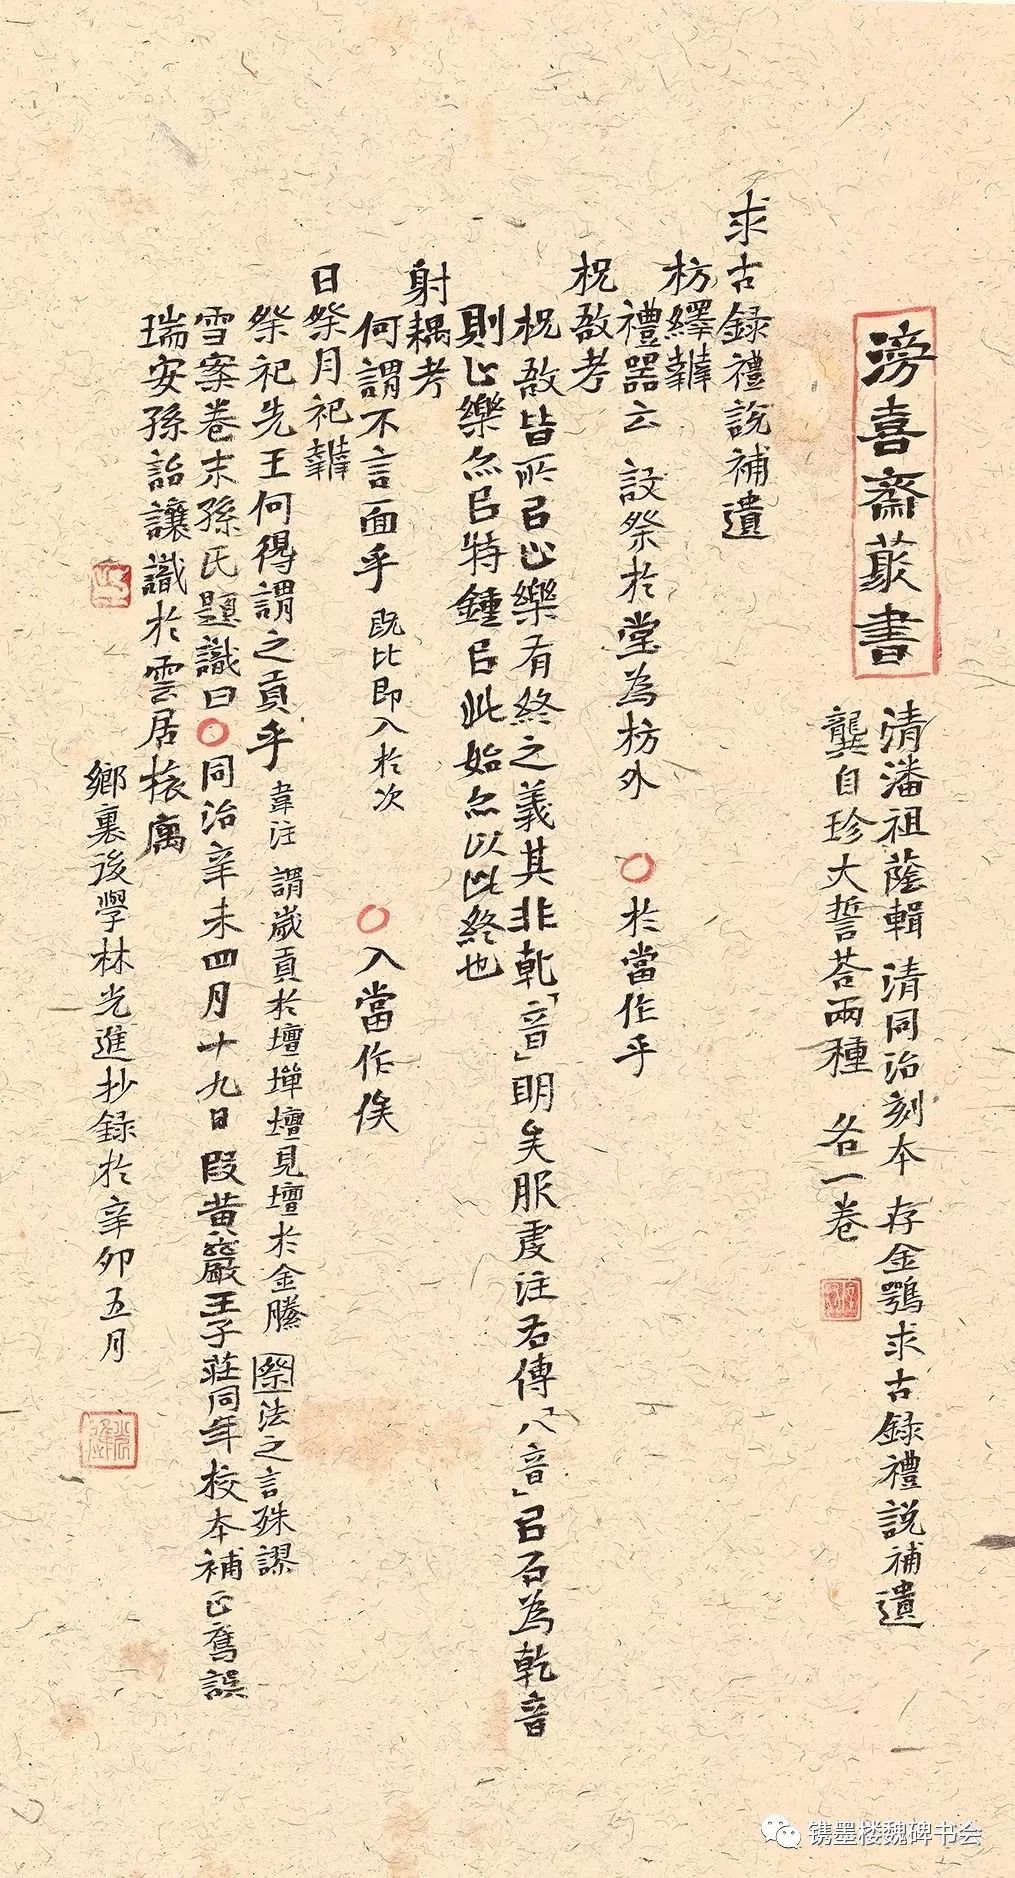 滂喜齋叢書
清潘祖蔭輯 清同治刻本 存金鶚求古錄禮說補遺
龔自珍大誓荅兩種 各一卷
求古録禮説補遺
枋繹辯
禮器云 設祭於堂為枋外 〇於當作乎
柷敔考
柷敔皆所㠯止樂有終之義其非乾「音」明矣服虔注左傳「八音」㠯石為乾音
則止樂尒㠯特鍾㠯此始尒以此終也
射耦考
何謂不言面乎 既比即入於次 〇入當作俟
日祭月祀辯
祭祀先王何得謂之貢乎 韋注 謂歲貢於壇墠壇見壇於金縢 祭法之言殊謬
雪案卷末孫氏題識曰〇同治辛未四月十九日段黄巖王子莊同年校本補正奪誤
瑞安孫詒讓識於雲居檆廎
鄉裏後學林光進抄録於辛卯五月
镌墨楼魏碑书会